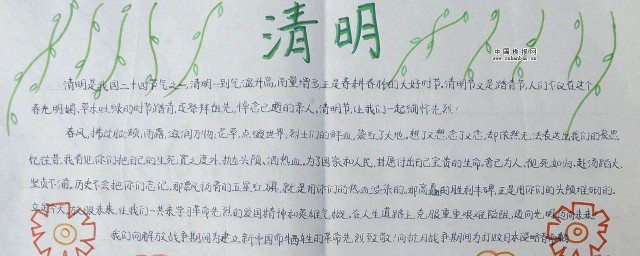 清明
中国板报网
清明是我国二十四节气之一,清明一到气温升高,雨量增多,正是春耕春种的大好时节,清明节又是踏青节,人们不仅在这个
春光明媚、草木吐绿的时节踏青,还祭拜祖先,悼念已逝的亲人,清明节,让我们一起缅怀先烈!
春风,拂过脸颊,雨露,滋润万物,花草,点缀世界,烈士们的鲜血,染红了大地,想了又想,念了又念,却依然无法表达出我们的哀思
忆往昔,我看见你们把自己的生死置之度外,抛头颅,洒热血,为了国家和人民,甘愿付出自己宝贵的生命,舍己为人,视死如归,赴汤蹈火,
坚贞不渝,历史不会把你们忘记,那飘扬着的五星红旗,就是用你们的热血染的,那高矗的胜利丰碑,正是用你们的头颅堆砌的,
让我们一共来学习革命先烈的爱国精神和英雄气概,在人生道路上,克服重重艰难险阻,迈向光明
我们向解放战争期间为建立新中国而牺牲的革命先烈致敬!向抗日战争期间为打败日本侵略者